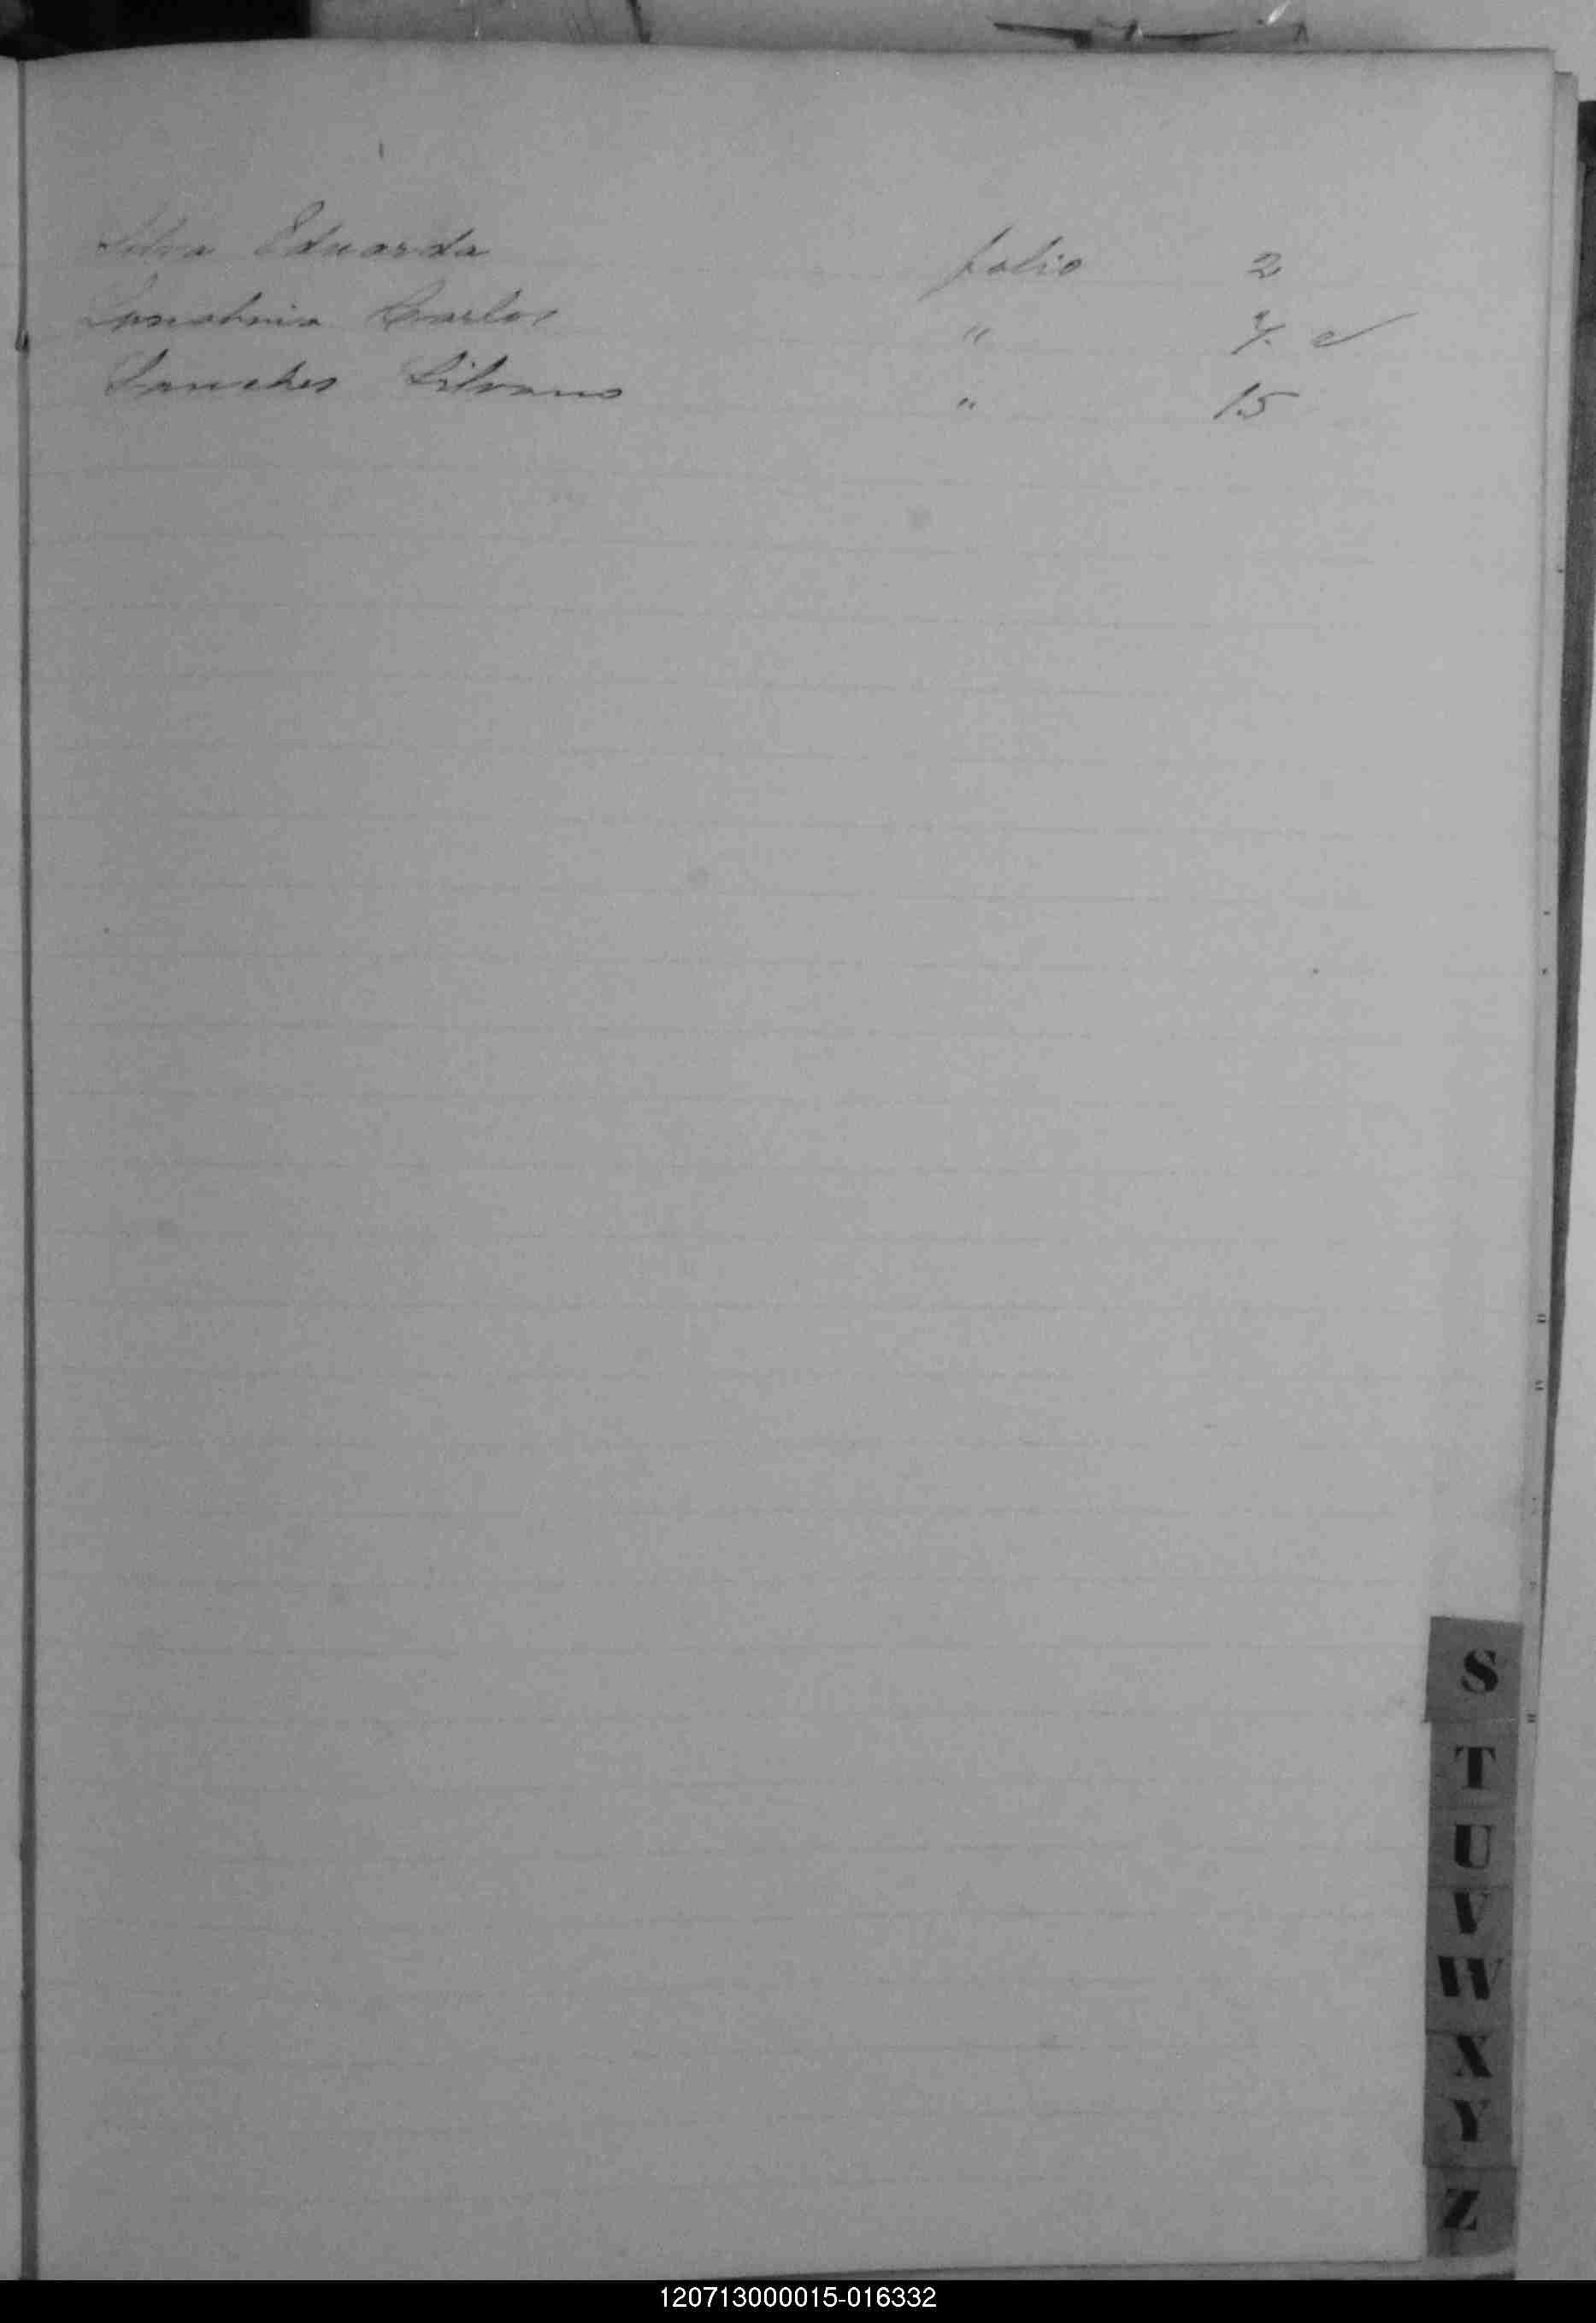 Silva Eduarda folio 2
Carlos "
Sanches Silvano " 15
S
T
U
V
W
X
Y
Z
120713000015-016332